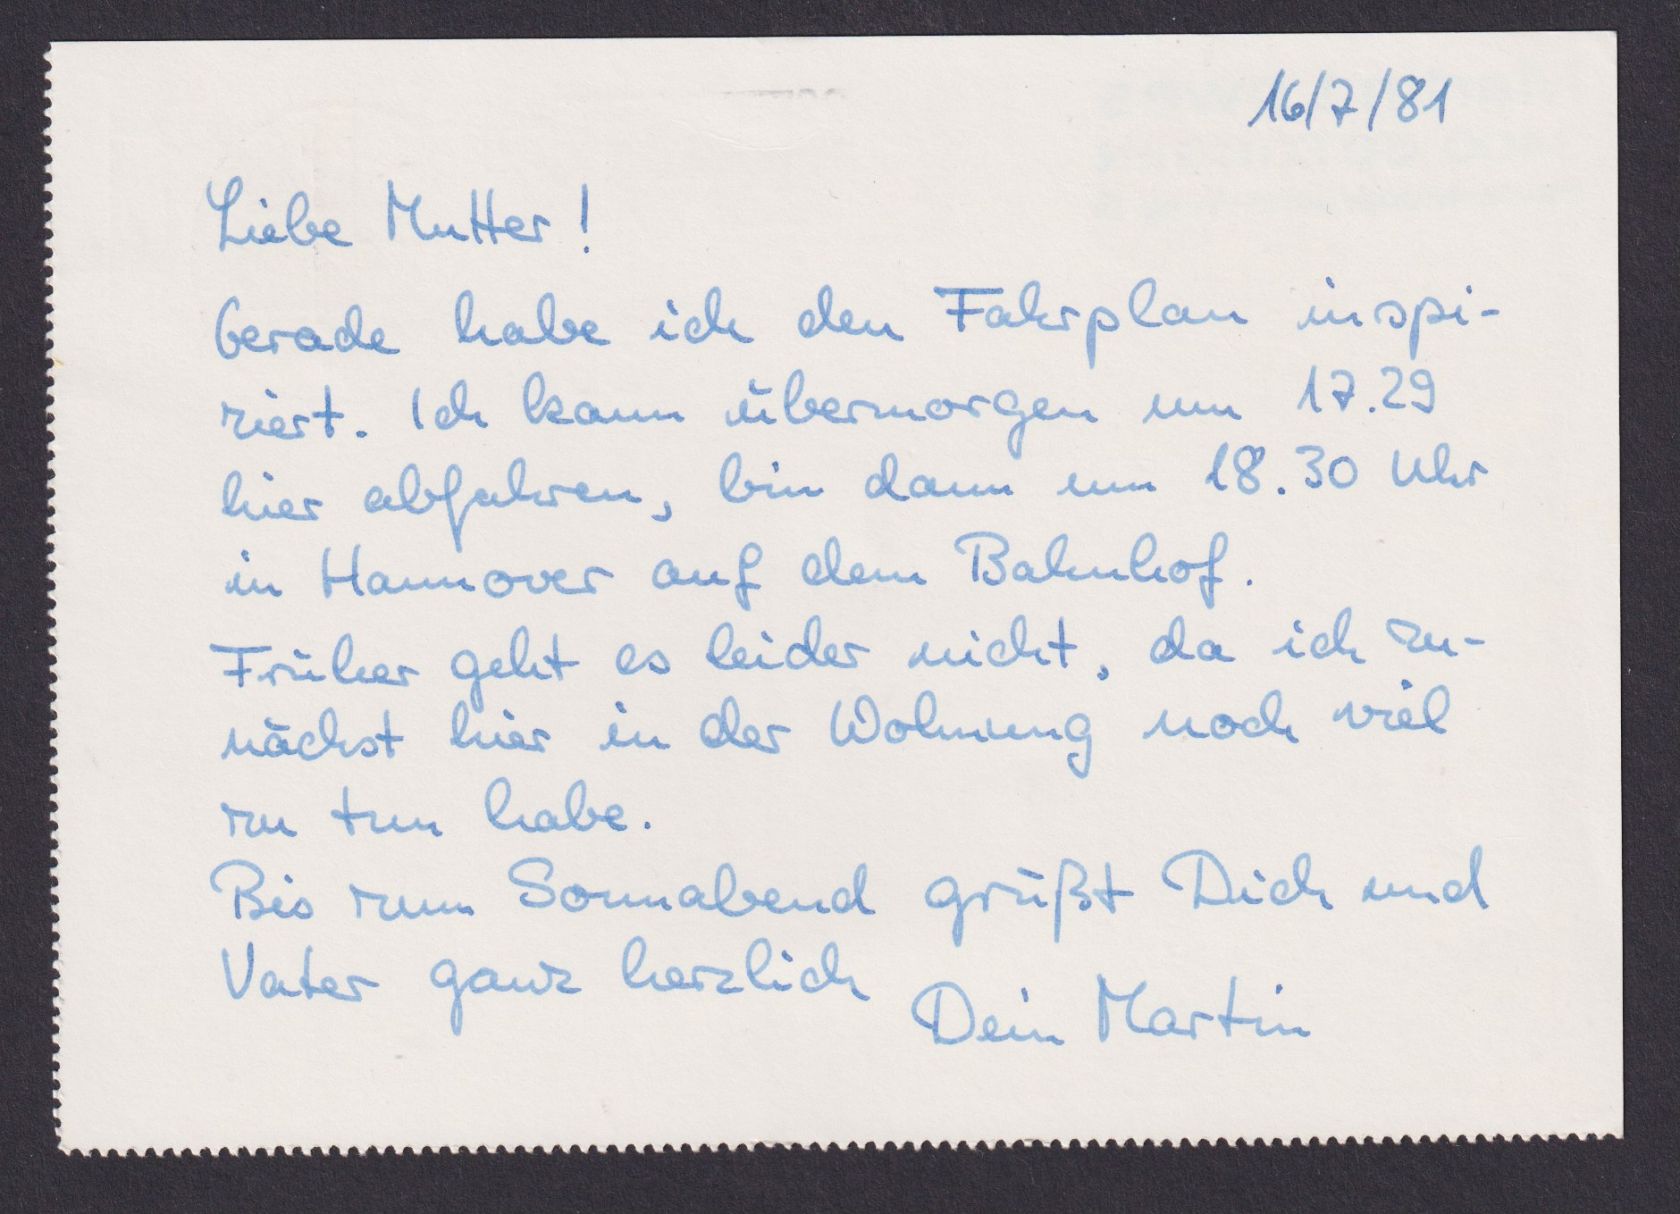 16/7/81
Liebe Mutter!
Gerade habe ich den Fahrplan inspi-
riert. Ich kann übermorgen um 17.29
hier abfahren, bin dann um 18.30 Uhr
in Hannover auf dem Bahnhof.
Früher geht es leider nicht, da ich zu-
nächst hier in der Wohnung noch viel
zu tun habe.
Bis zum Sonnabend grüßt Dich und
Vater ganz herzlich
Dein Martin